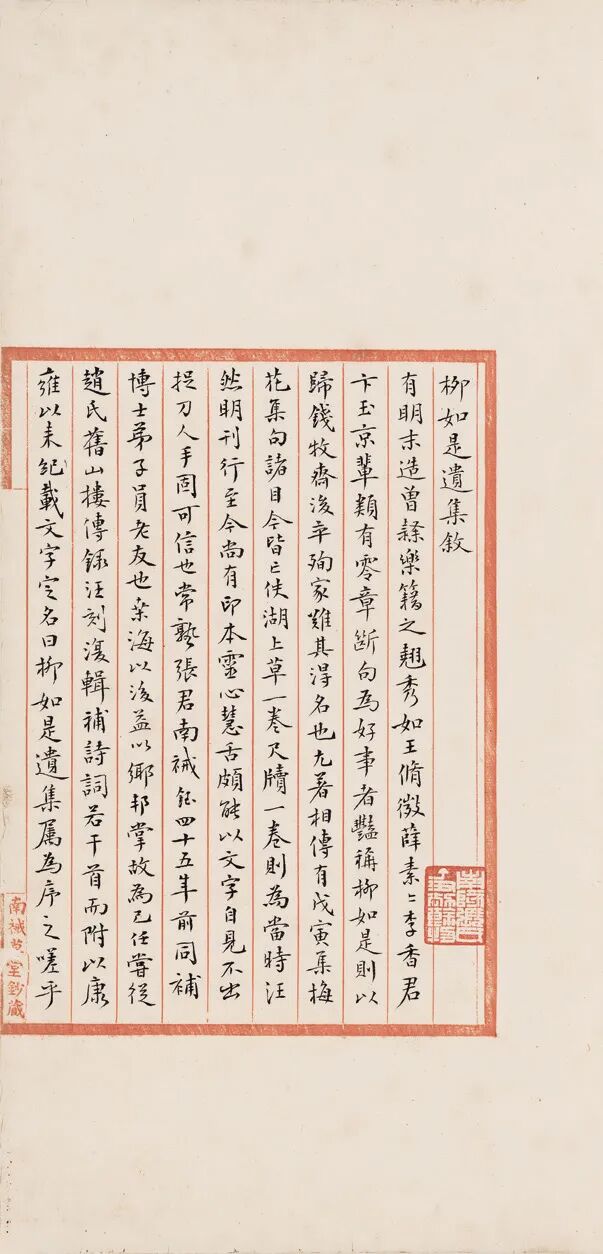 柳如是遺集敘
有明末造曾隸樂籍之翹秀如王脩微薛素〻李香君
卞玉京輩類有零章斷句為好事者豔稱柳如是則以
歸錢牧齋後卒殉家難其得名也尤著相傳有戊寅集梅
花集句諸目今皆亡佚湖上草一卷尺牘一卷則為當時汪
然明刊行至今尚有印本靈心慧舌頗能以文字自見不出
捉刀人手固可信也常熟張君南祴鈺四十五年前同補
博士弟子員老友也桑海以後益以鄉邦掌故為己任嘗從
趙氏舊山樓傳錄汪刻復輯補詩詞若干首而附以康
雍以來紀載文字定名曰柳如是遺集屬為序之嗟乎
南祴草堂鈔藏